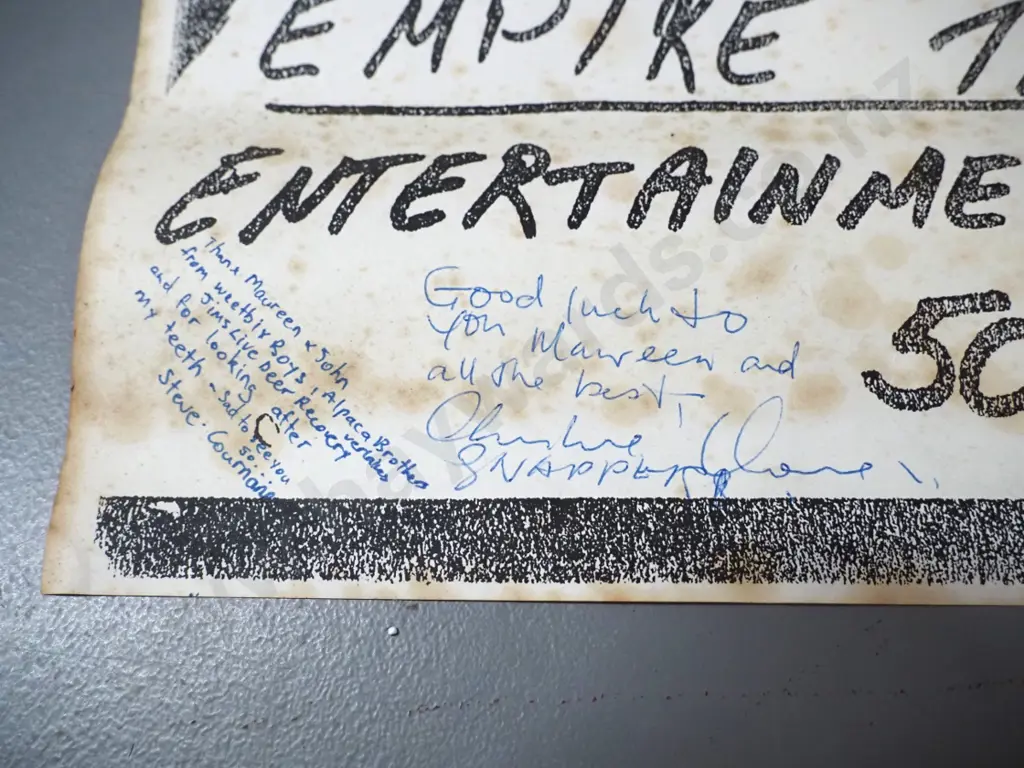 EMPIRE
ENTERTAINME
50
Thanx Maureen & John
from weetbix Boys / Alpaca Brothers
Jims Live Deer Recovery
and for looking after
my teeth - sad to see you
so...
Steve.
Good luck to
you Maureen and
all the best,
SNAPPER